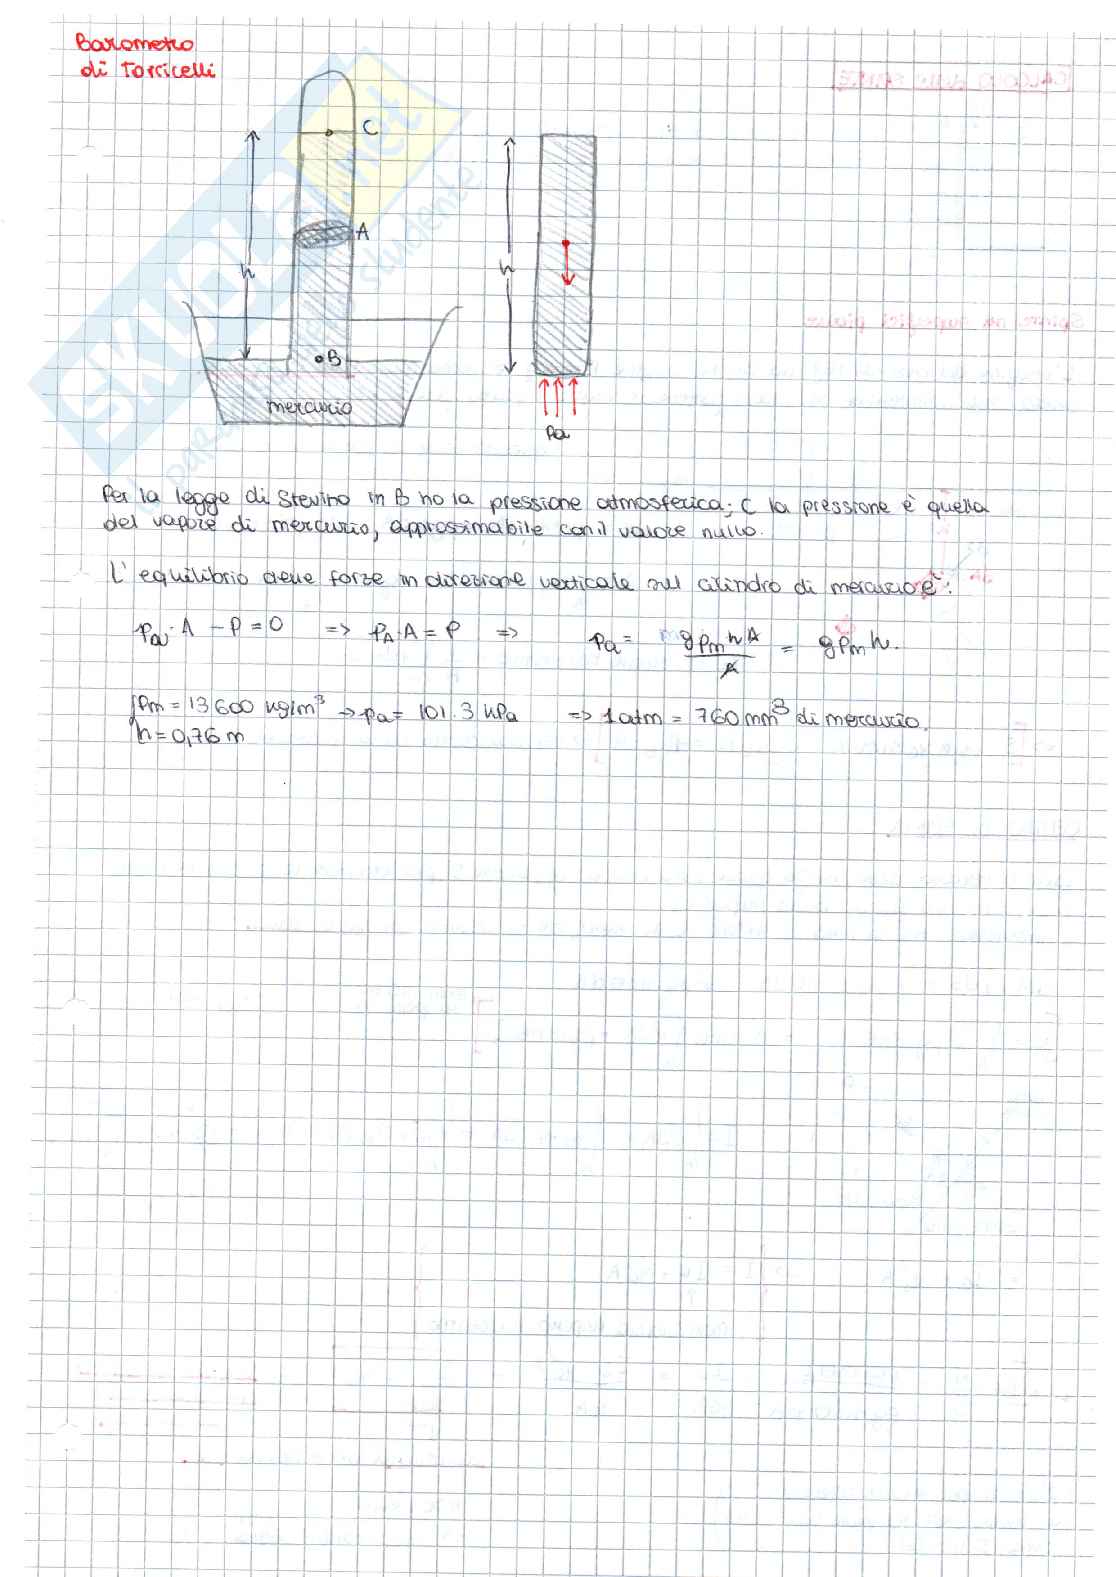 Barometro
di Torricelli
C
A
h
h
B
mercurio
pa
SKUOLA.net
Per la legge di Stevino in B ho la pressione atmosferica; C la pressione è quella
del vapore di mercurio, approssimabile con il valore nullo.
L'equilibrio delle forze in direzione verticale sul cilindro di mercurio è:
pa·A - P = 0 => pA·A = P => pa = gρm h A / A = gρm h.
ρm = 13600 kg/m³ → pa = 101.3 kPa => 1 atm = 760 mm³ di mercurio.
h = 0,76 m